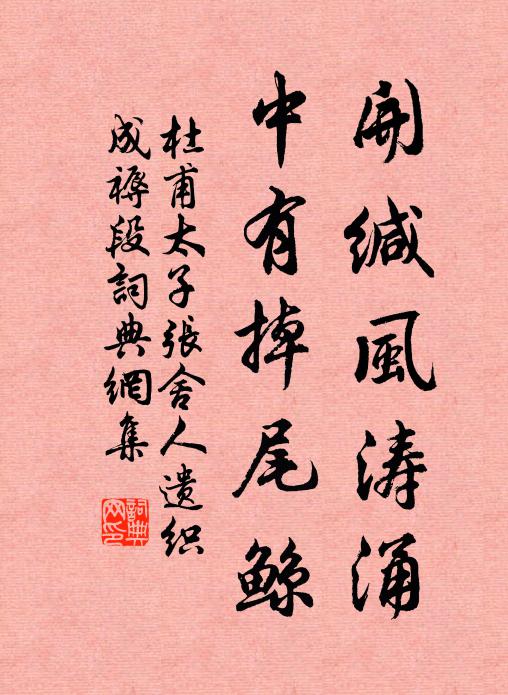 開緘風涛涌
中有掉尾鲸
杜甫太子張舍人遺织
成褥段詞典網集
詞典
网印